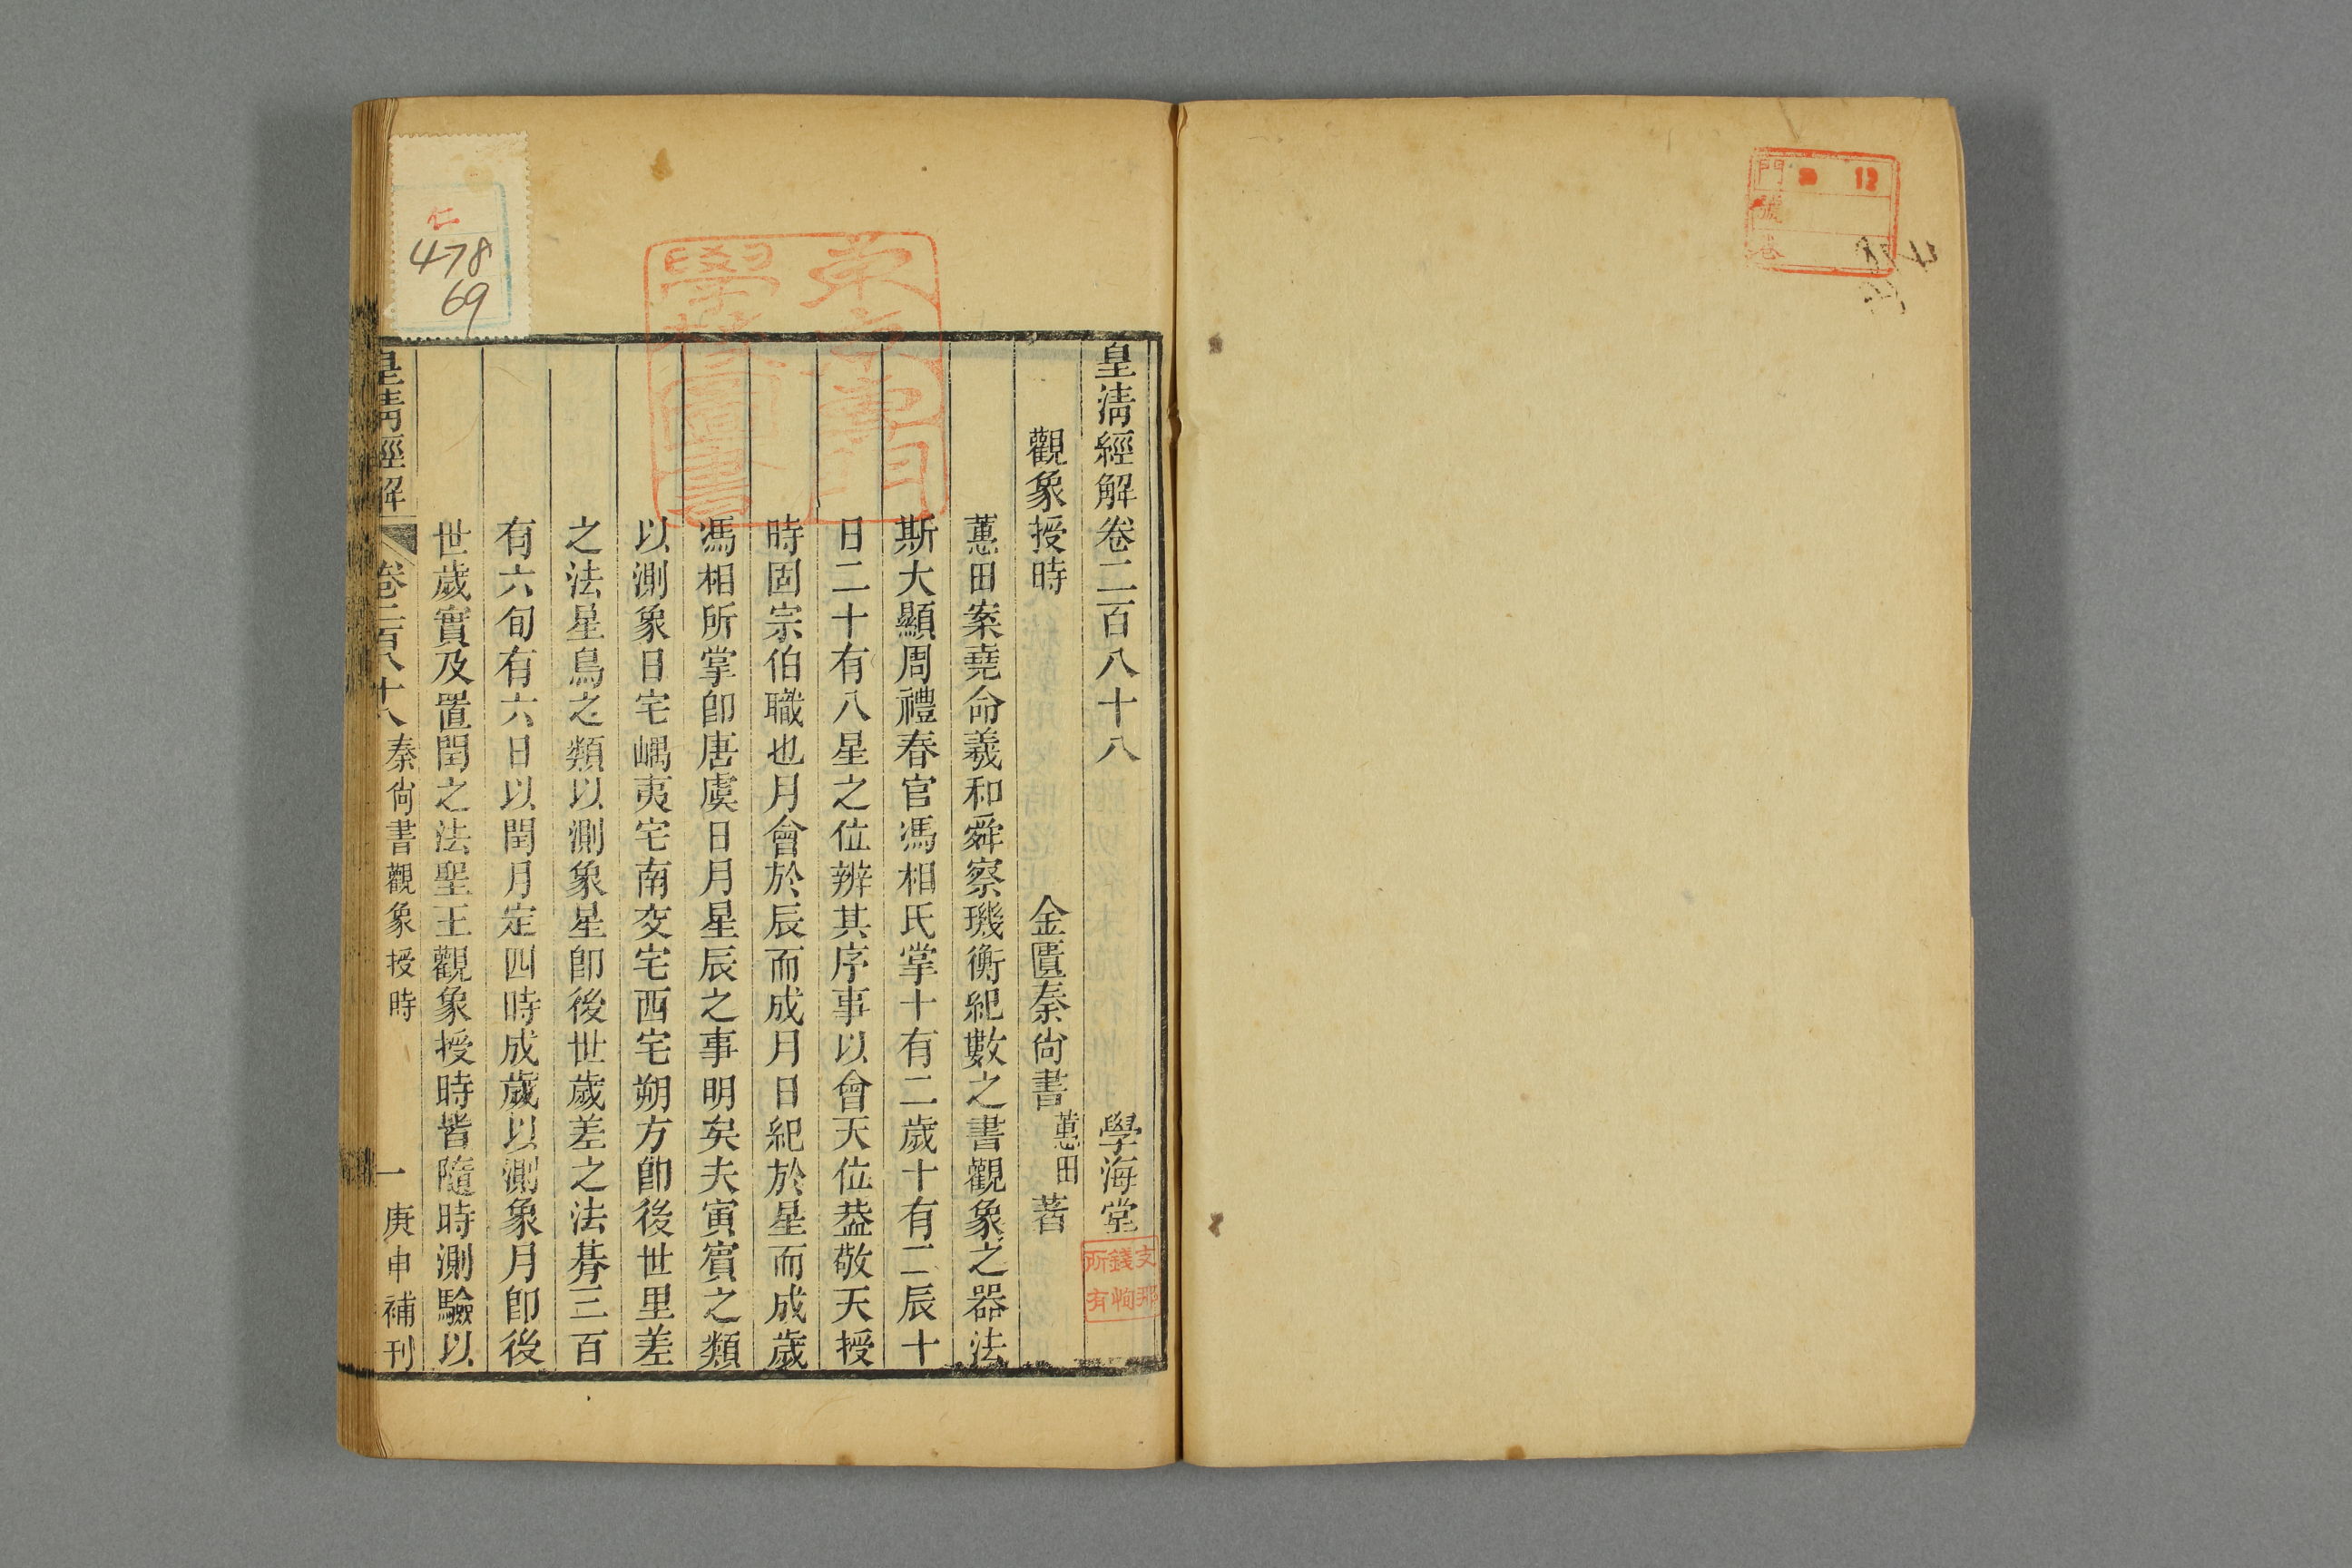 皇清經解卷二百八十八
學海堂
觀象授時
金匱秦尙書蕙田著
蕙田案堯命羲和舜察璣衡紀數之書觀象之器法
斯大顯周禮春官馮相氏掌十有二歲十有二辰十
日二十有八星之位辨其序事以會天位葢敬天授
時固宗伯職也月會於辰而成月日紀於星而成歲
馮相所掌卽唐虞日月星辰之事明矣夫寅賓之類
以測象日宅嵎夷宅南交宅西宅朔方卽後世里差
之法星鳥之類以測象星卽後世歲差之法朞三百
有六旬有六日以閏月定四時成歲以測象月卽後
世歲實及置閏之法聖王觀象授時皆隨時測驗以
皇清經解
卷二百八十八
秦尙書觀象授時
一
庚申補刊
仁
478
69
支那
錢恂
所有
門 12
號